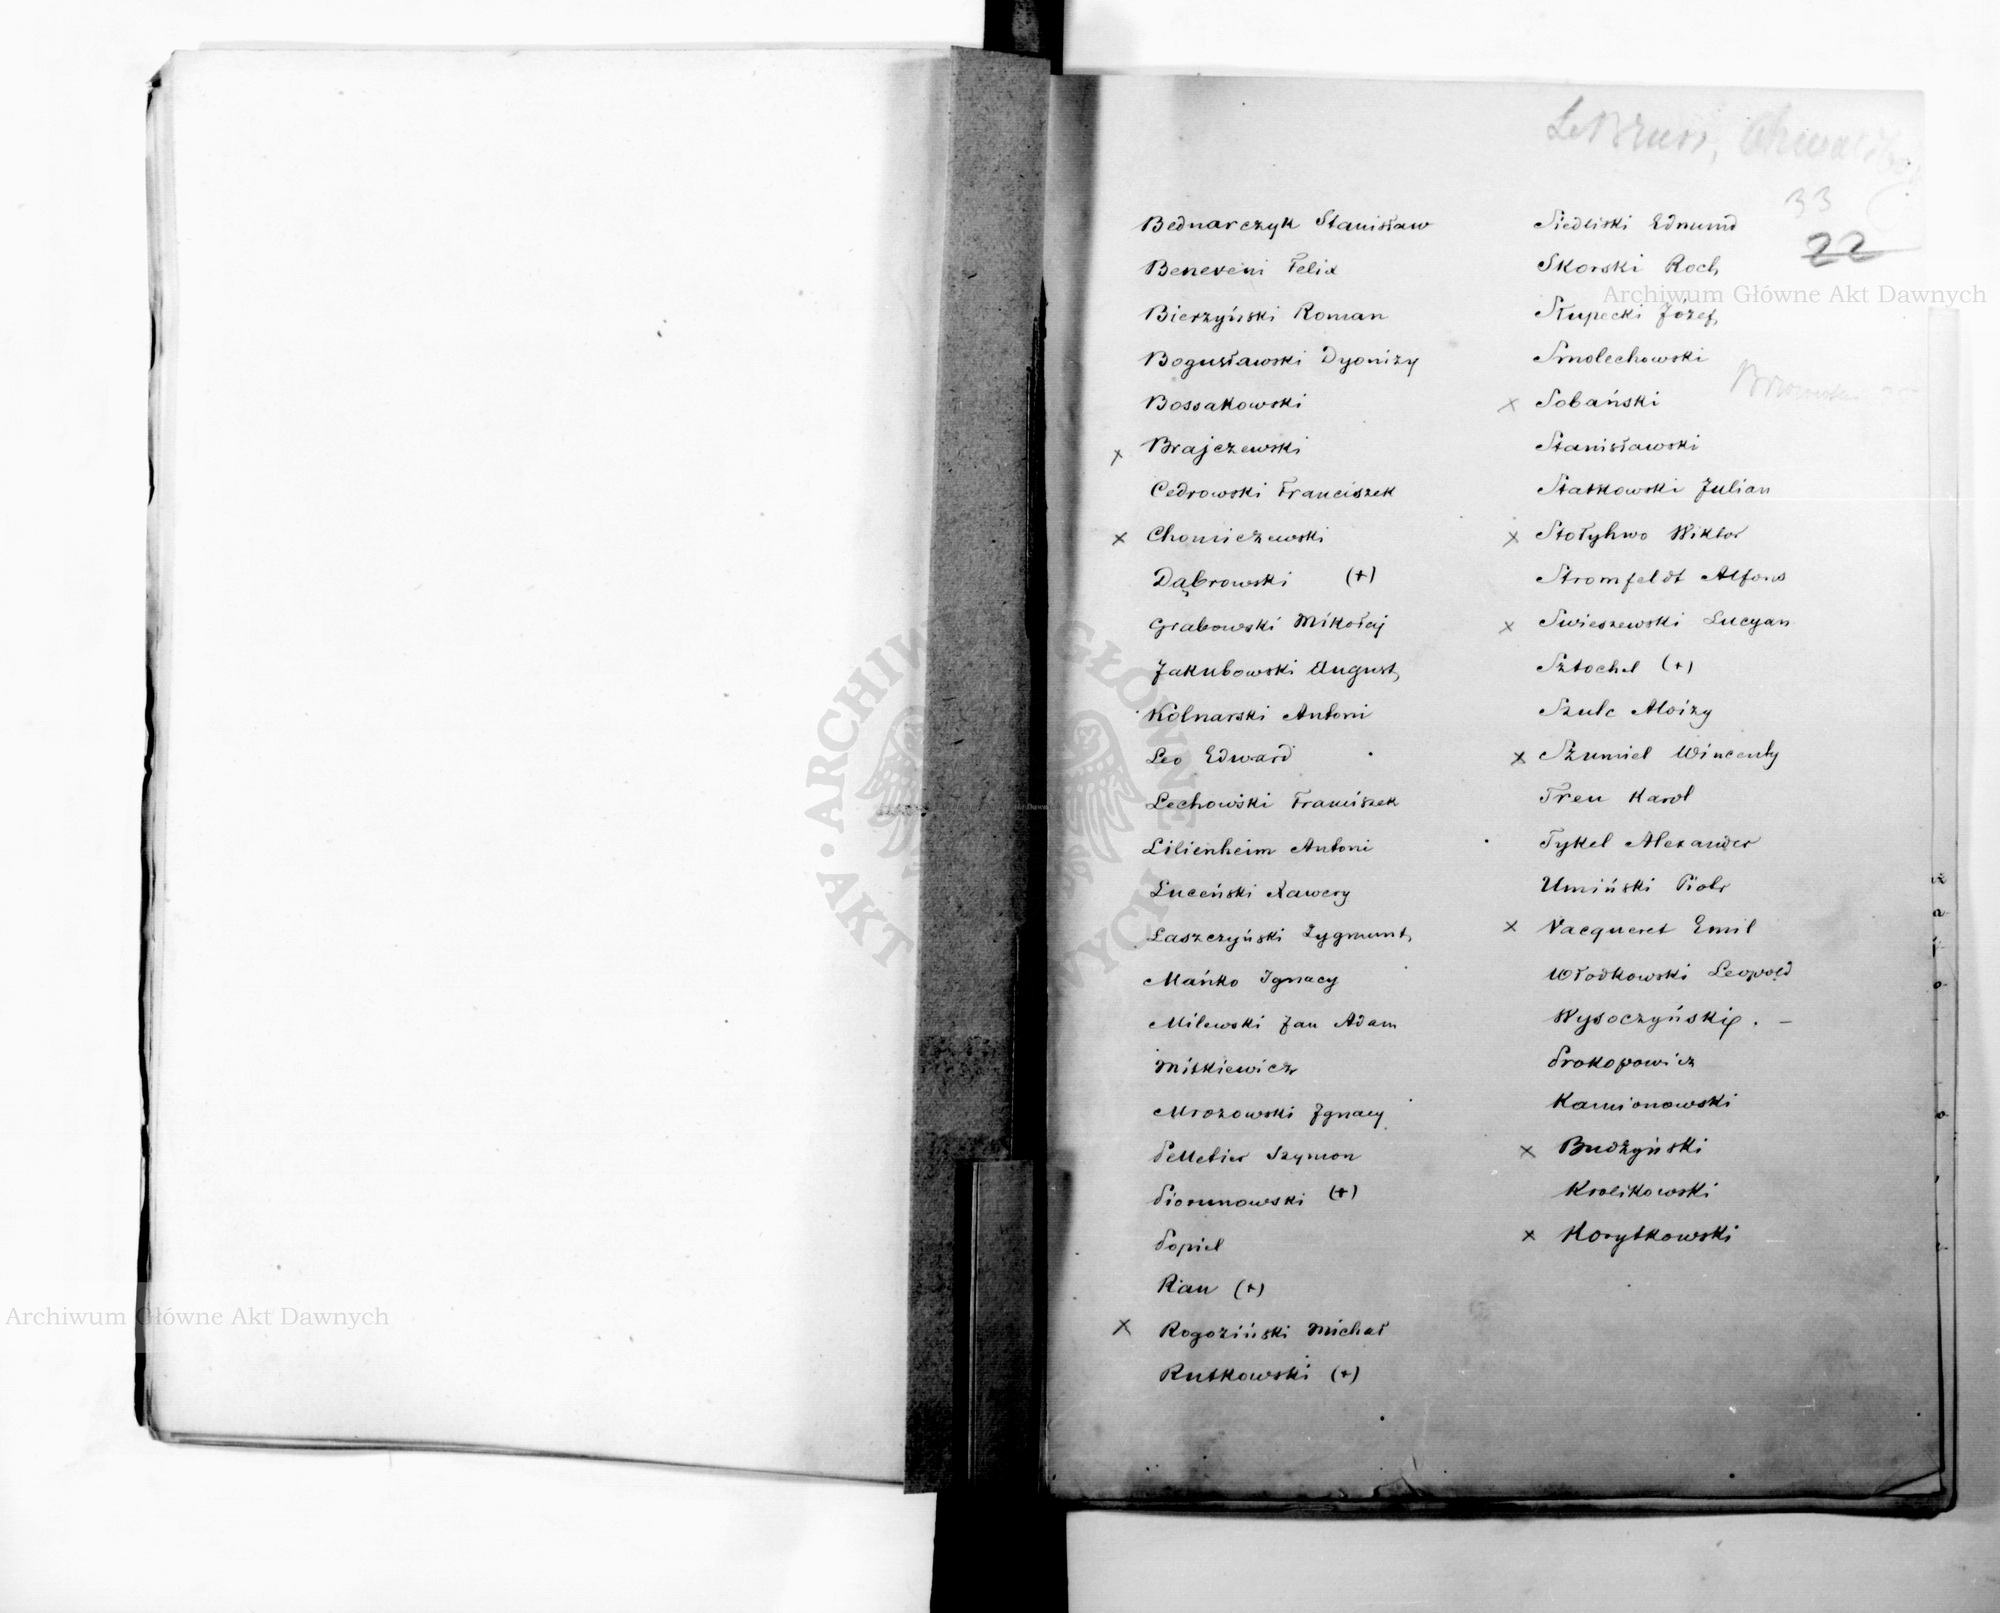 33
22
Bednarczyk Stanisław
Beneveni Felix
Bierzyński Roman
Bogusławski Dyonizy
Bossakowski
x Brajczewski
Cedrowski Franciszek
x Chomiczewski
Dąbrowski (+)
Grabowski Mikołaj
Jakubowski August
Kolnarski Antoni
Leo Edward
Lechowski Franciszek
Lilienheim Antoni
Luceński Xawery
Laszczyński Zygmunt
Mańko Ignacy
Milewski Jan Adam
Mitkiewicz
Mrozowski Ignacy
Pelletier Szymon
Piorunowski (+)
Popiel
Rian (+)
x Rogoziński Michał
Rutkowski (+)
Siedliski Edmund
Skorski Roch
Słupecki Józef
Smolechowski
x Sobański
Stanisławski
Statkowski Julian
x Stołyhwo Wiktor
Stromfeldt Alfons
x Swieszewski Lucyan
Sztochel (+)
Szulc Aloizy
x Szumiel Wincenty
Treu Karol
Tykel Alexander
Umiński Piotr
x Vacqueret Emil
Włodkowski Leopold
Wysoczyński
Prokopowicz
Kamionowski
x Budzyński
Krolikowski
x Korytkowski
Archiwum Główne Akt Dawnych
Archiwum Główne Akt Dawnych